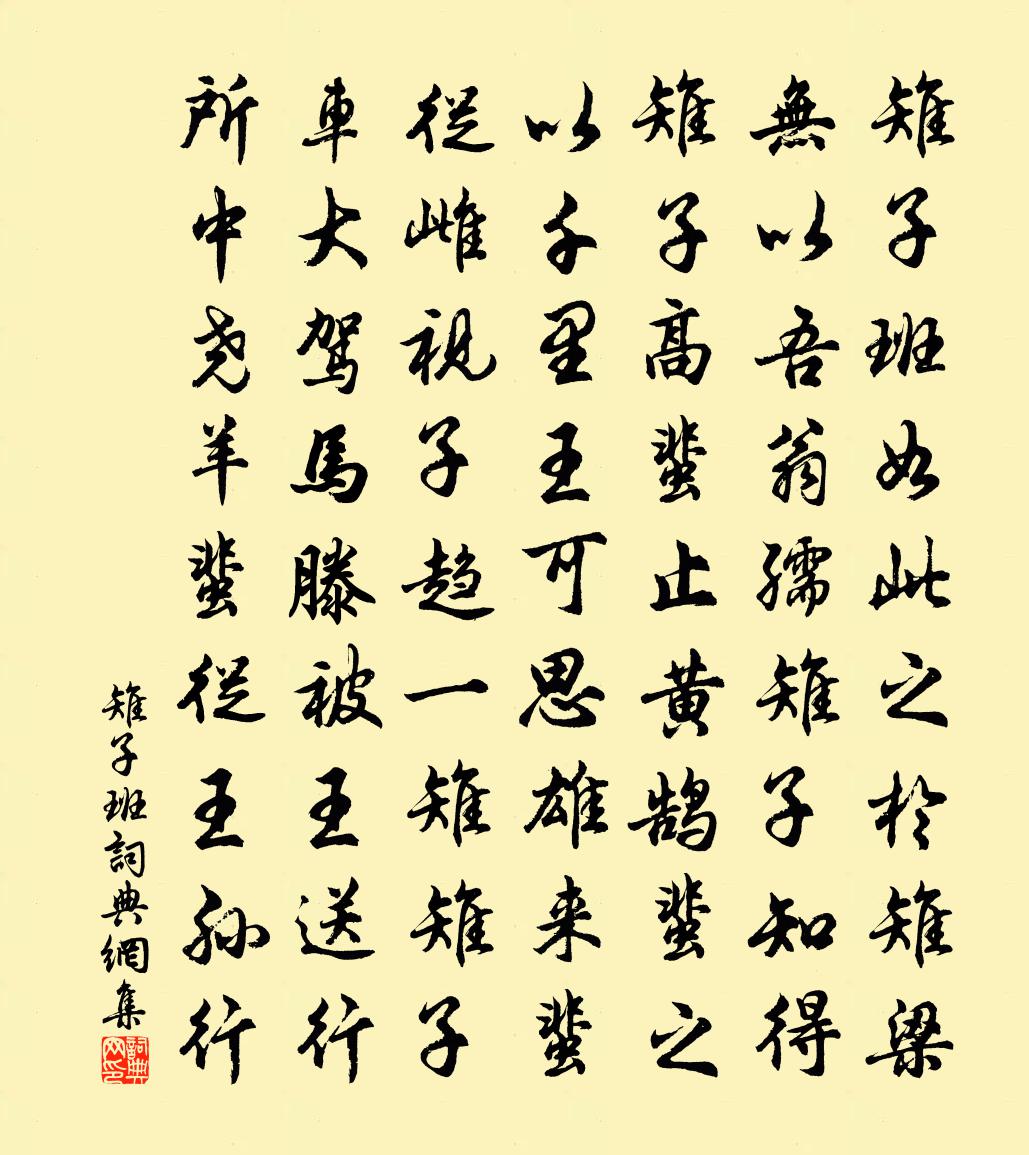 雉子班如此之於雉梁
無以吾翁孺雉子知得
雉子高蜚止黄鵠蜚之
以千里王可思雄来蜚
從雌視子趋一雉雉子
車大駕馬滕被王送行
所中尧羊蜚從王孫行
雉子班詞典網集
詞典网印